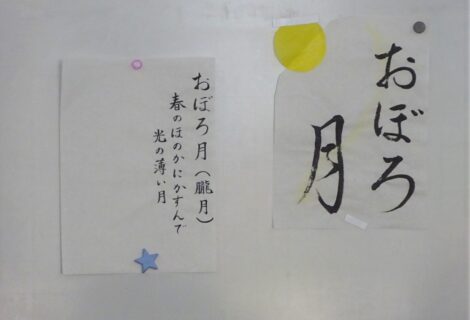 おぼろ月(朧月)
春のほのかにかすんで
光の薄い月
おぼろ
月